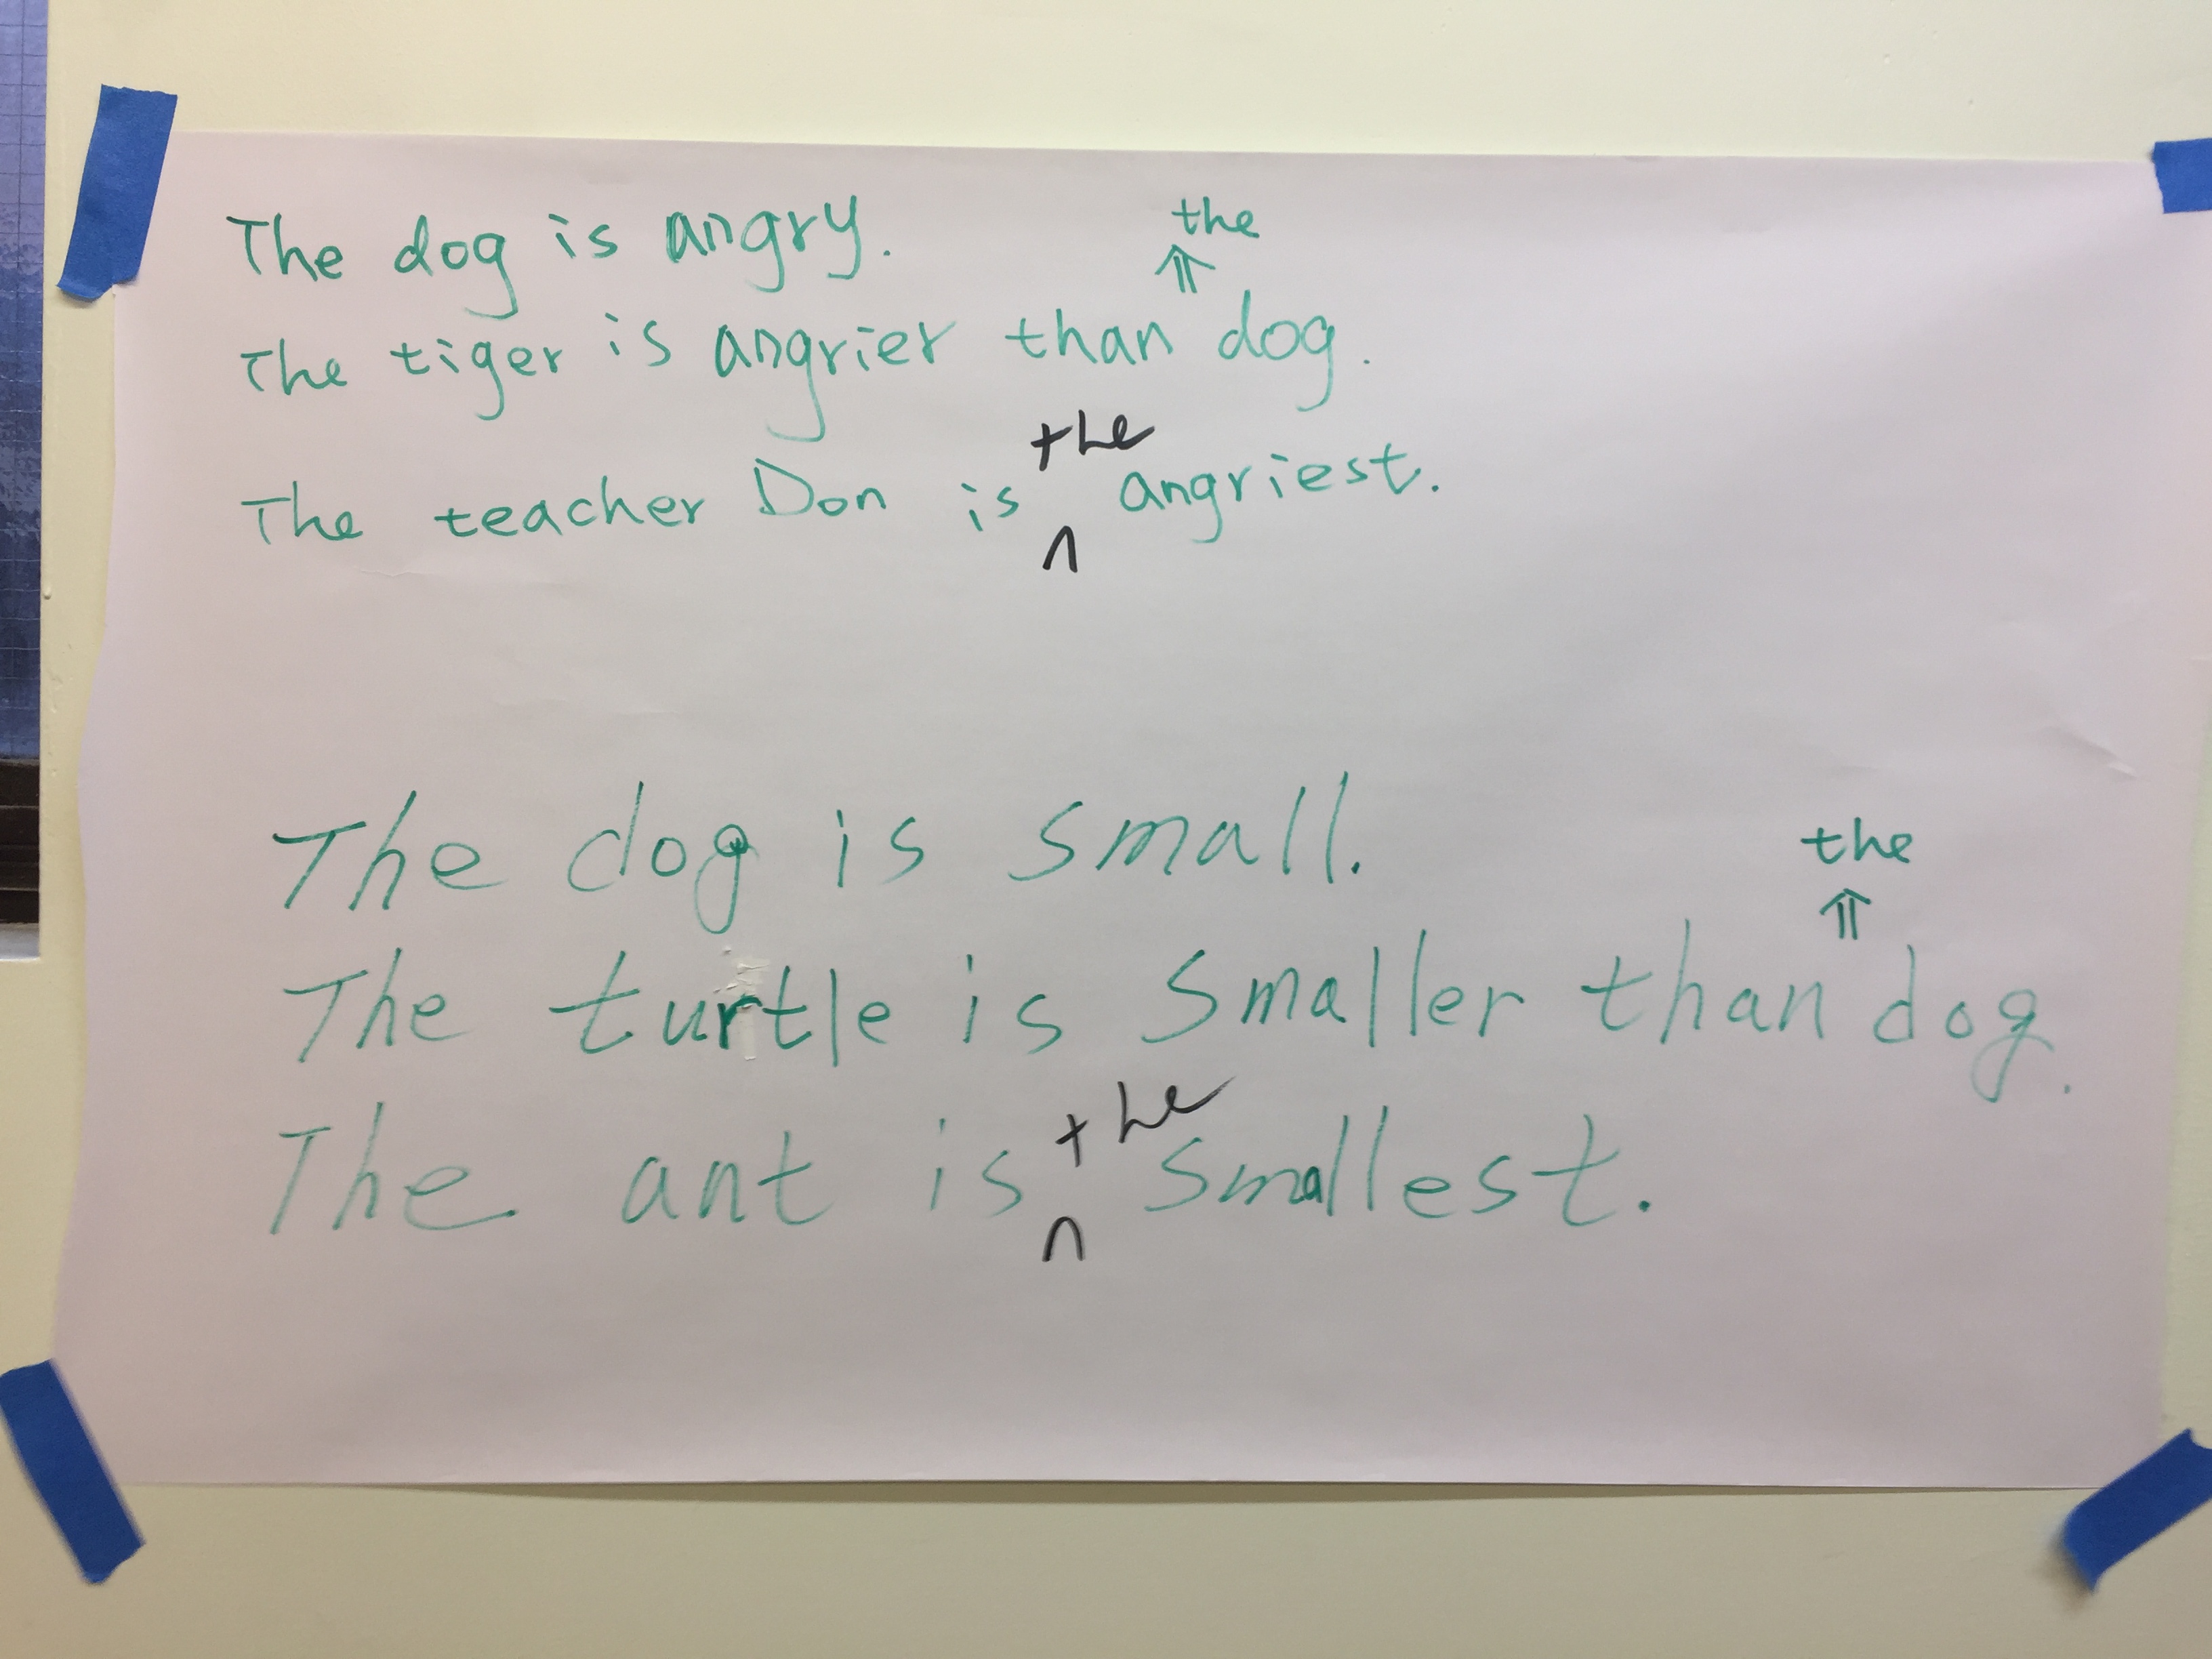 The dog is angry.
the
The tiger is angrier than dog.
the
The teacher Don is angriest.
The dog is small.
the
The turtle is smaller than dog.
the
The ant is smallest.